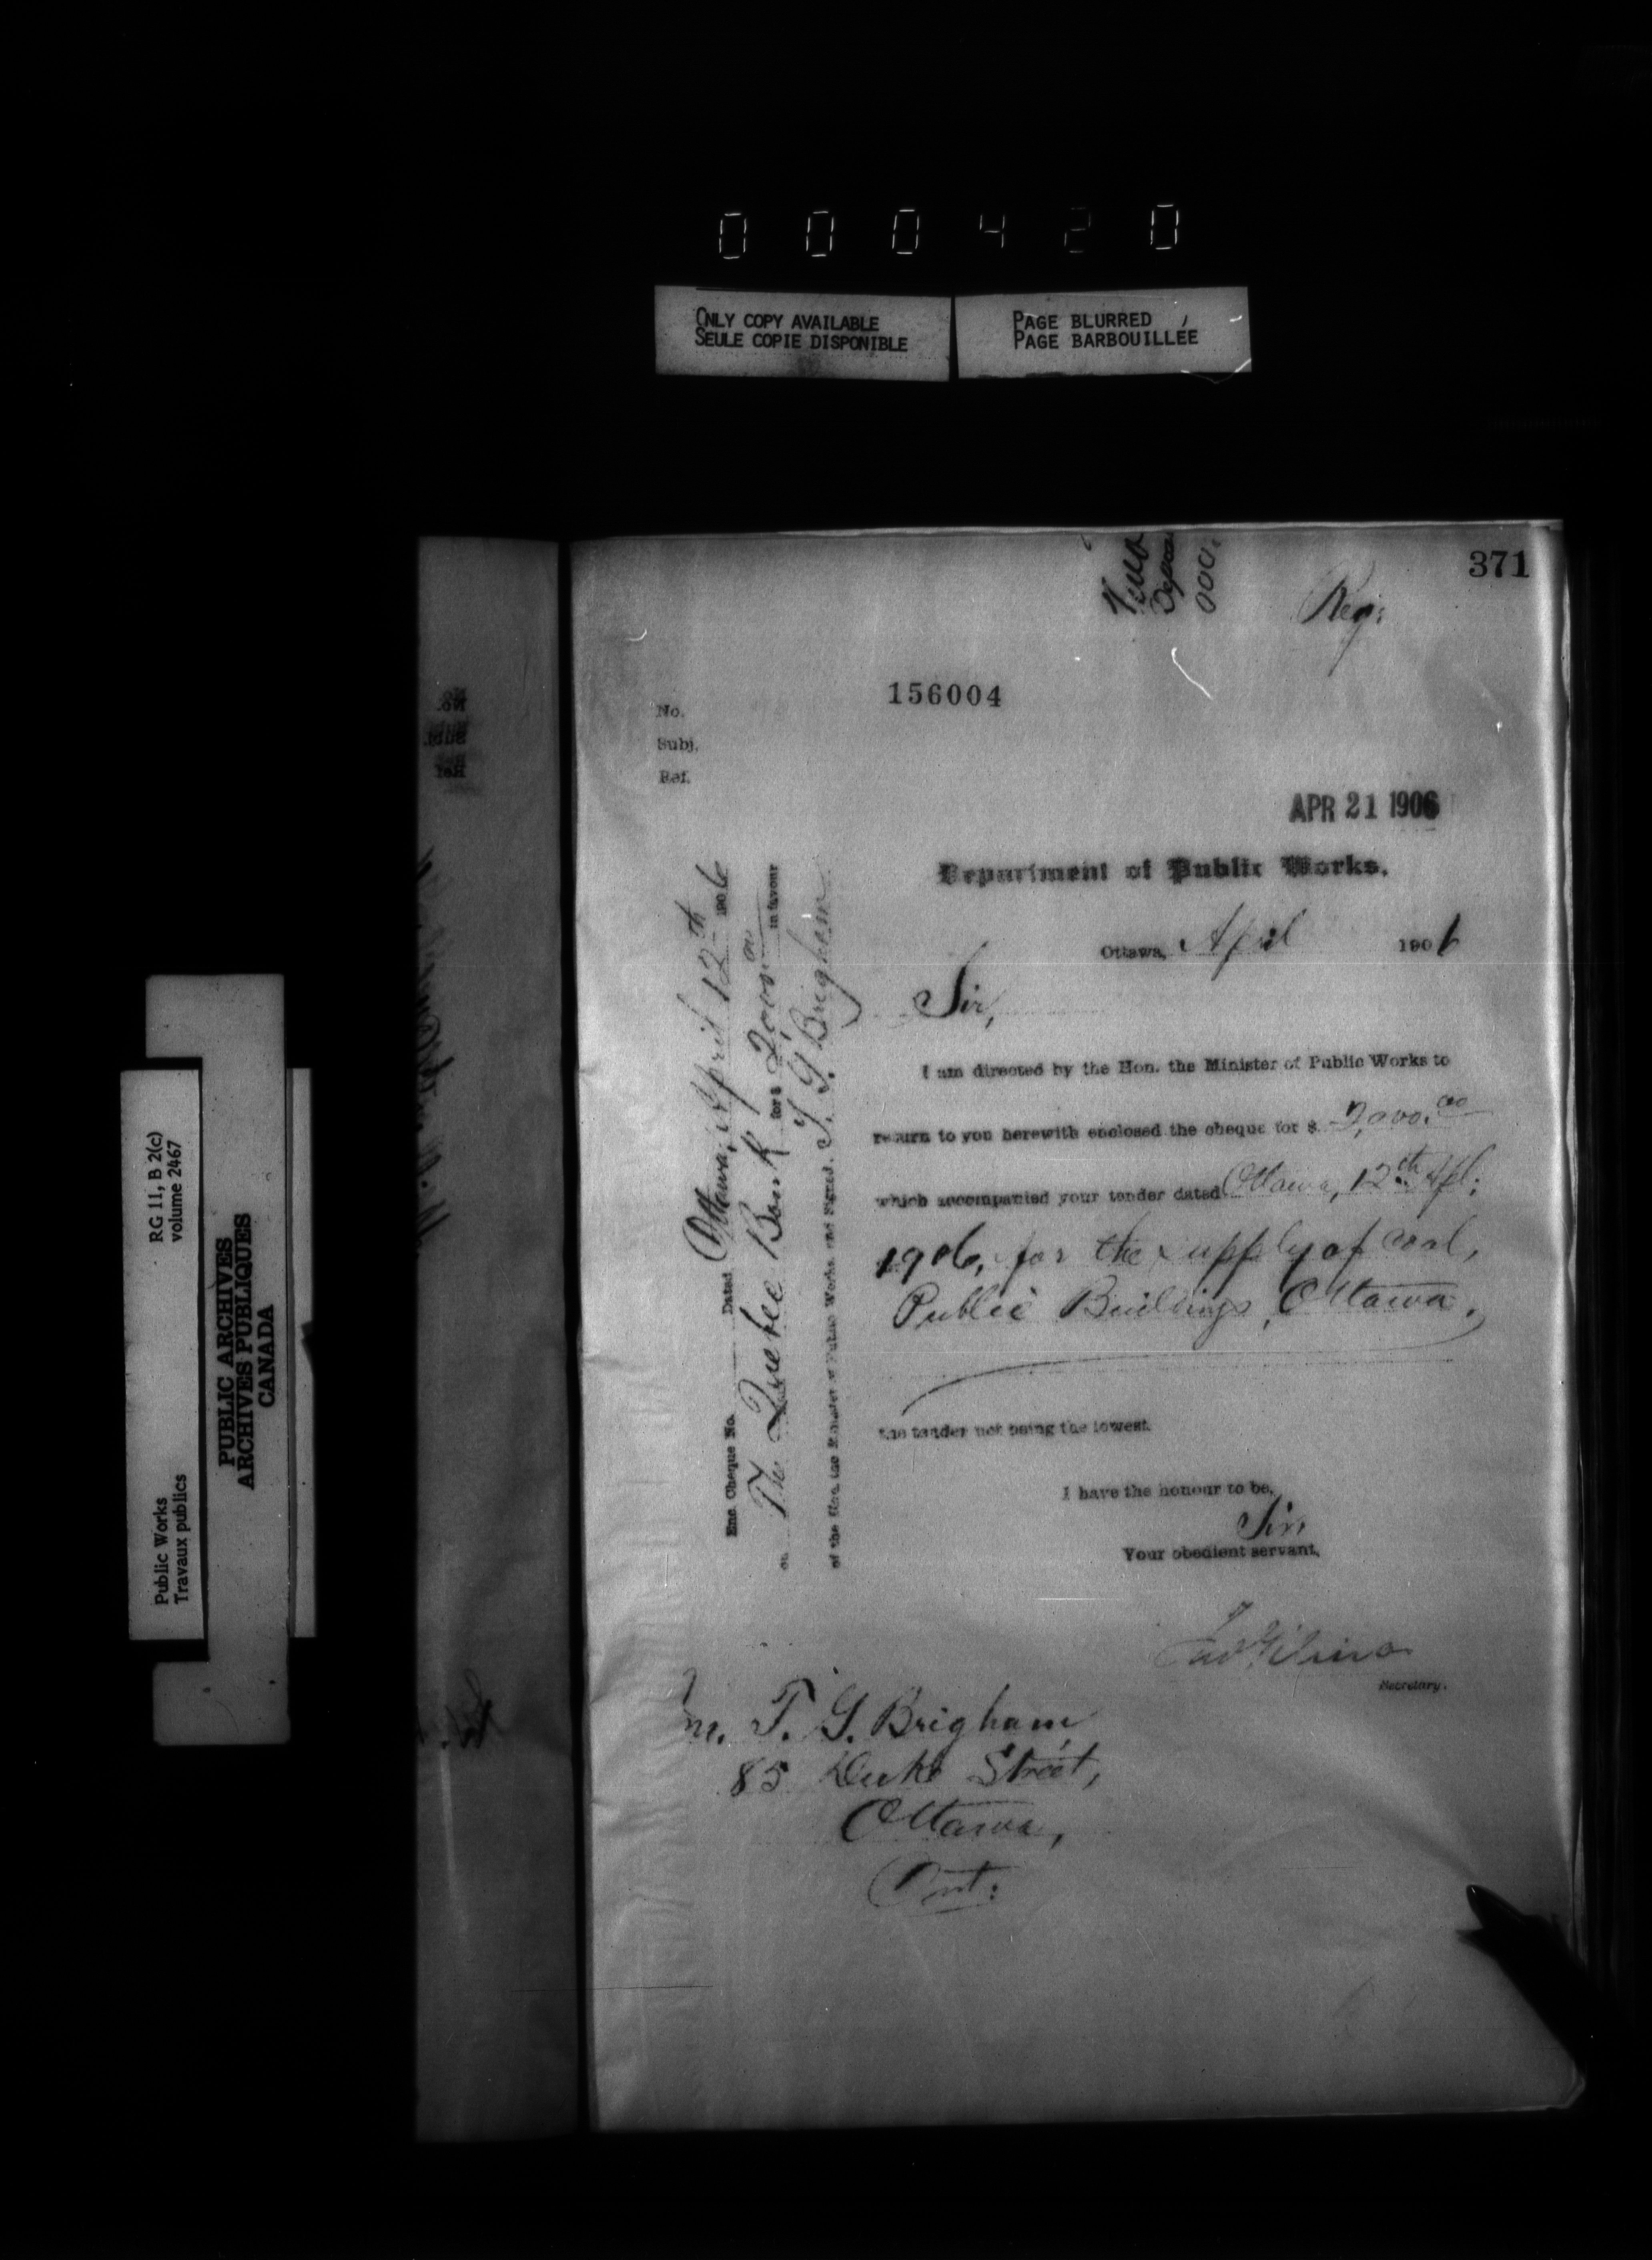 000420
ONLY COPY AVAILABLE
SEULE COPIE DISPONIBLE
PAGE BLURRED
PAGE BARBOUILLÉE
RG 11, B 2(c)
volume 2467
Public Works
Travaux publics
PUBLIC ARCHIVES
ARCHIVES PUBLIQUES
CANADA
371
Reg:
156004
No.
Subj.
Ref.
APR 21 1906
Department of Public Works.
Ottawa, April 1906
Sir,
I am directed by the Hon. the Minister of Public Works to
return to you herewith enclosed the cheque for $ 2,000.00
which accompanied your tender dated Ottawa, 12th Apl:
1906, for the supply of coal,
Public Buildings, Ottawa.
the tender not being the lowest.
I have the honour to be,
Sir,
Your obedient servant,
Secretary.
Enc. Cheque No. Dated Ottawa, April 12th 1906
on The Quebec Bank for $ 2,000.00 in favour
of the Hon. the Minister of Public Works and Signed. T. G. Brigham
T. G. Brigham,
85 Duke Street,
Ottawa,
Ont: